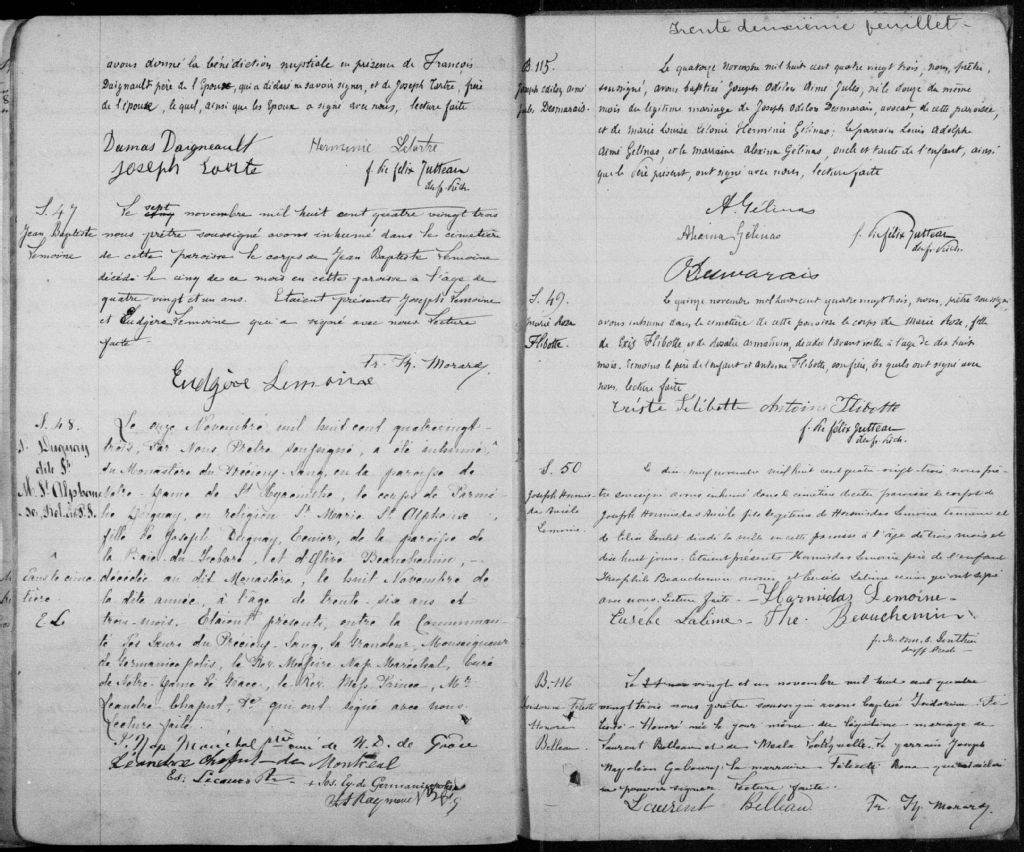 avons donné la bénédiction nuptiale en présence de François
Daignault père de l'Époux, qui a déclaré ne savoir signer, et de Joseph Tartre, père
de l'épouse, lequel, ainsi que les époux a signé avec nous, lecture faite
Dumas Daigneault Herminie
Joseph f. Th félix Jutteau
S. 47
Jean Baptiste
Lemoine
Le sept novembre mil huit cent quatre vingt trois
nous prêtre soussigné avons inhumé dans le cimetière
de cette paroisse le corps de Jean Baptiste Lemoine
décédé le cinq de ce mois en cette paroisse à l'âge de
quatre vingt et un ans. Etaient présents Joseph Lemoine
et Eudgère Lemoine qui a signé avec nous Lecture
faite.
Fr. Th. Morard
Eudgère Lemoine
S. 48.
Duguay
dite St
M. St Alphonse
Le onze Novembre mil huit cent quatrevingt-
trois, Par Nous Prêtre soussigné, a été inhumé
du Monastère du Précieux-Sang, en la paroisse de
Notre-Dame de St Hyacinthe, le corps de
Duguay, en religion Sr Marie St Alphonse,
fille de Joseph Duguay, de la paroisse de
la Baie du Febvre, et d' Beauchemin, -
décédée au dit Monastère, le huit Novembre de
la dite année, à l'âge de trente-six ans et
trois-mois. Etaient présents, outre la Communau-
té des Sœurs du Précieux-Sang, Sa Grandeur, Monseigneur
de Germanicopolis, le Rév. Messire Nap. Maréchal, Curé
de Notre-Dame de Grace, le Rev. Mess. Prince, Mr
Léandre Chaput, &c qui ont signé avec nous.
Lecture faite.
Nap Maréchal ptre curé de N. D. de Grâce
Léandre Chaput de Montréal
Ed: Lecours Ptre + Jos. Ev. de Germanicopolis
Raymond
Trente deuxième feuillet -
B. 115.
Joseph Odilon Aimé
Jules Desmarais.
Le quatorze Novembre mil huit cent quatre vingt trois, nous, prêtre,
soussigné, avons baptisé Joseph Odilon Aimé Jules, né le douze du même
mois du légitime mariage de Joseph Odilon Desmarais, avocat, de cette paroisse,
et de Marie Louise Herminie Gélinas; le parrain Louis Adolph
Aimé Gélinas, et la marraine Alexina Gélinas, oncle et tante de l'enfant, ainsi
que le Père présent, ont signé avec nous, lecture faite
A. Gélinas
Alexina Gélinas f. Th félix Jutteau
Desmarais
S. 49.
Marie Rose
Flibotte.
Le quinze novembre mil huit cent quatre vingt trois, nous, prêtre soussigné
avons inhumé dans le cimetière de cette paroisse le corps de Marie Rose, fille
de Flibotte, et de Rosalie, décédée l'avant veille à l'age de dix huit
mois. Témoins le père de l'enfant et Antoine Flibotte, son frère, les quels ont signé avec
nous, lecture faite
Flibotte Antoine Flibotte
f. Th félix Jutteau
S. 50
Joseph Hormis-
das
Lemoine.
Le dix neuf novembre mil huit cent quatre-vingt-trois nous prê-
tre soussigné avons inhumé dans le cimetière de cette paroisse le corps de
Joseph Hormisdas fils légitime de Hormisdas Lemoine et
de Goulet décédé la veille en cette paroisse à l'âge de trois mois et
dix huit jours. Etaient présents Hormisdas Lemoine père de l'enfant
Théophile Beauchemin et Eusèbe Lalime qui ont signé
avec nous. Lecture faite - Hormidas Lemoine -
Eusèbe Lalime - The. Beauchemin
B. 116
Isidore Féli
Honoré
Belleau.
Le vingt et un novembre mil huit cent quatre
vingt trois nous prêtre soussigné avons baptisé
Honoré né le jour même du légitime mariage de
Laurent Belleau et de. Le parrain Joseph
Napoléon; la marraine
ne pouvoir signer. Lecture faite.
Laurent Belleau Fr. Th. Morard